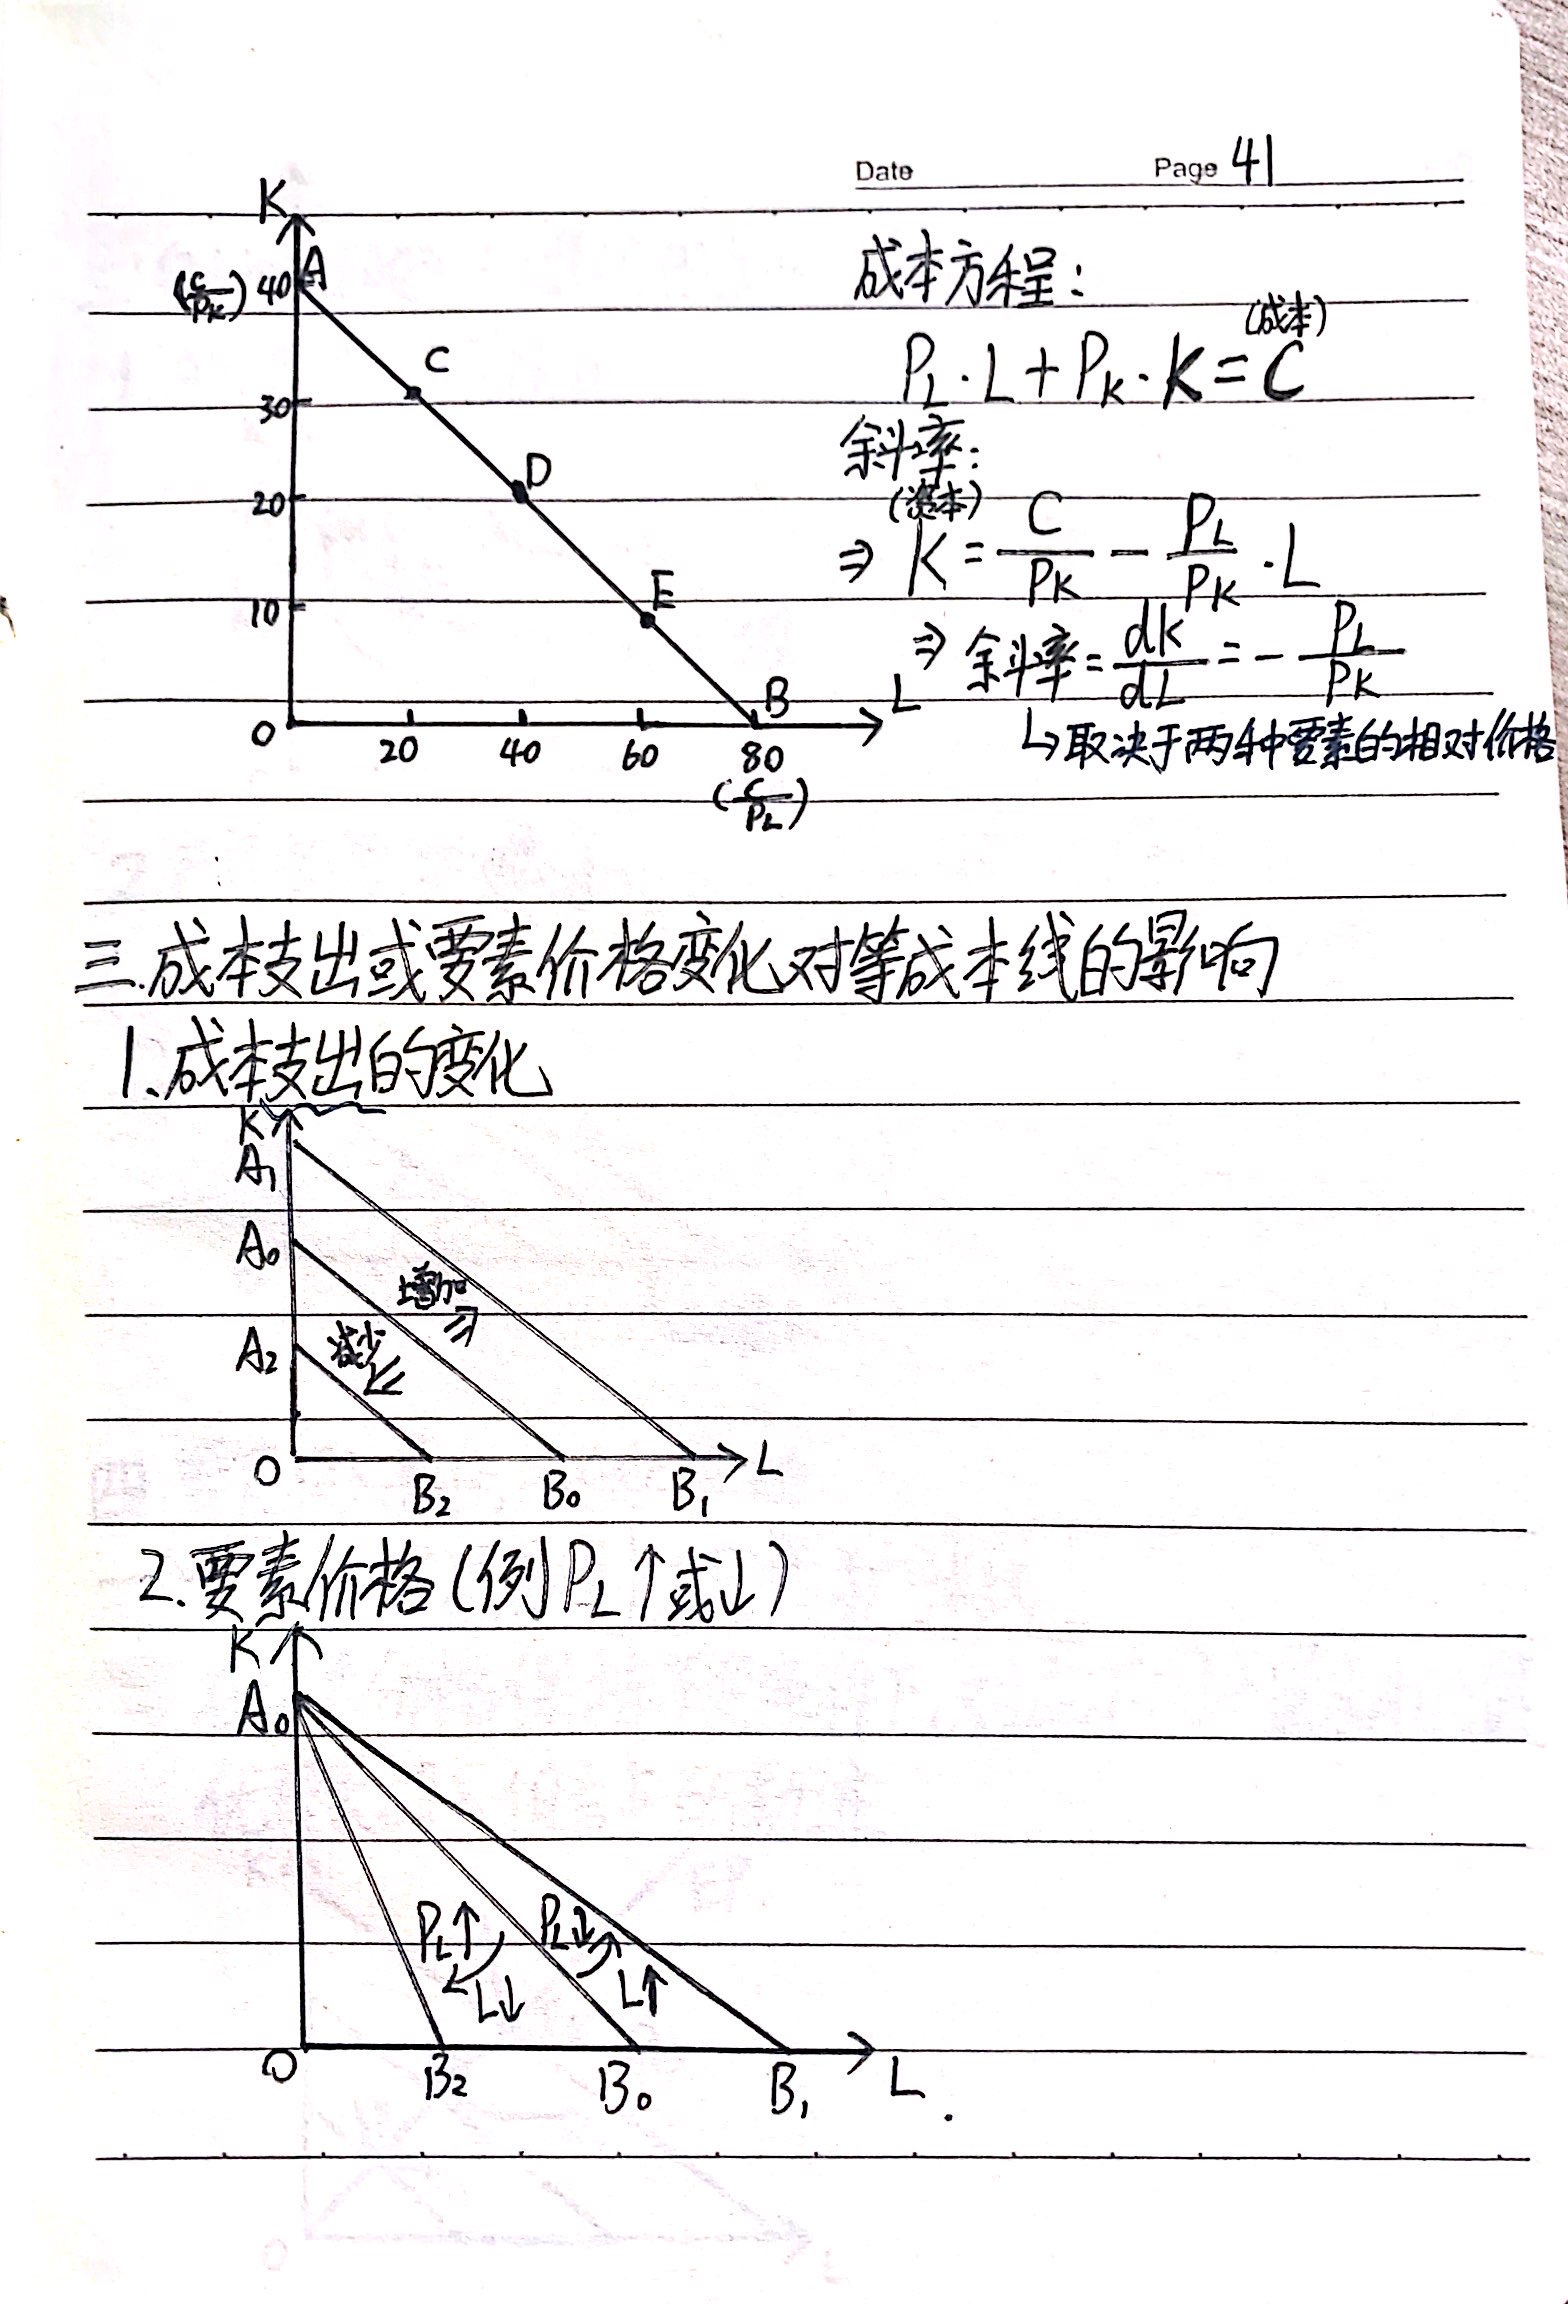 Date Page 41
K
(C/PK) 40 A
C
30
D
20
E
10
B
O 20 40 60 80 L
(C/PL)
成本方程:
(成本)
PL·L+PK·K=C
斜率:
(资本)
⇒ K = C/PK − PL/PK ·L
⇒ 斜率 = dK/dL = − PL/PK
↳取决于两种要素的相对价格
三.成本支出或要素价格变化对等成本线的影响
1.成本支出的变化
K
A₁
A₀
增加
A₂ 减少
O B₂ B₀ B₁ L
2.要素价格(例PL↑或↓)
K
A₀
PL↑ PL↓
L↓ L↑
O B₂ B₀ B₁ L.